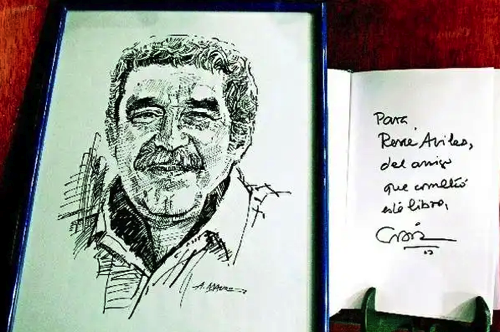 Para
René Avilés,
del amigo
que cometió
este libro,